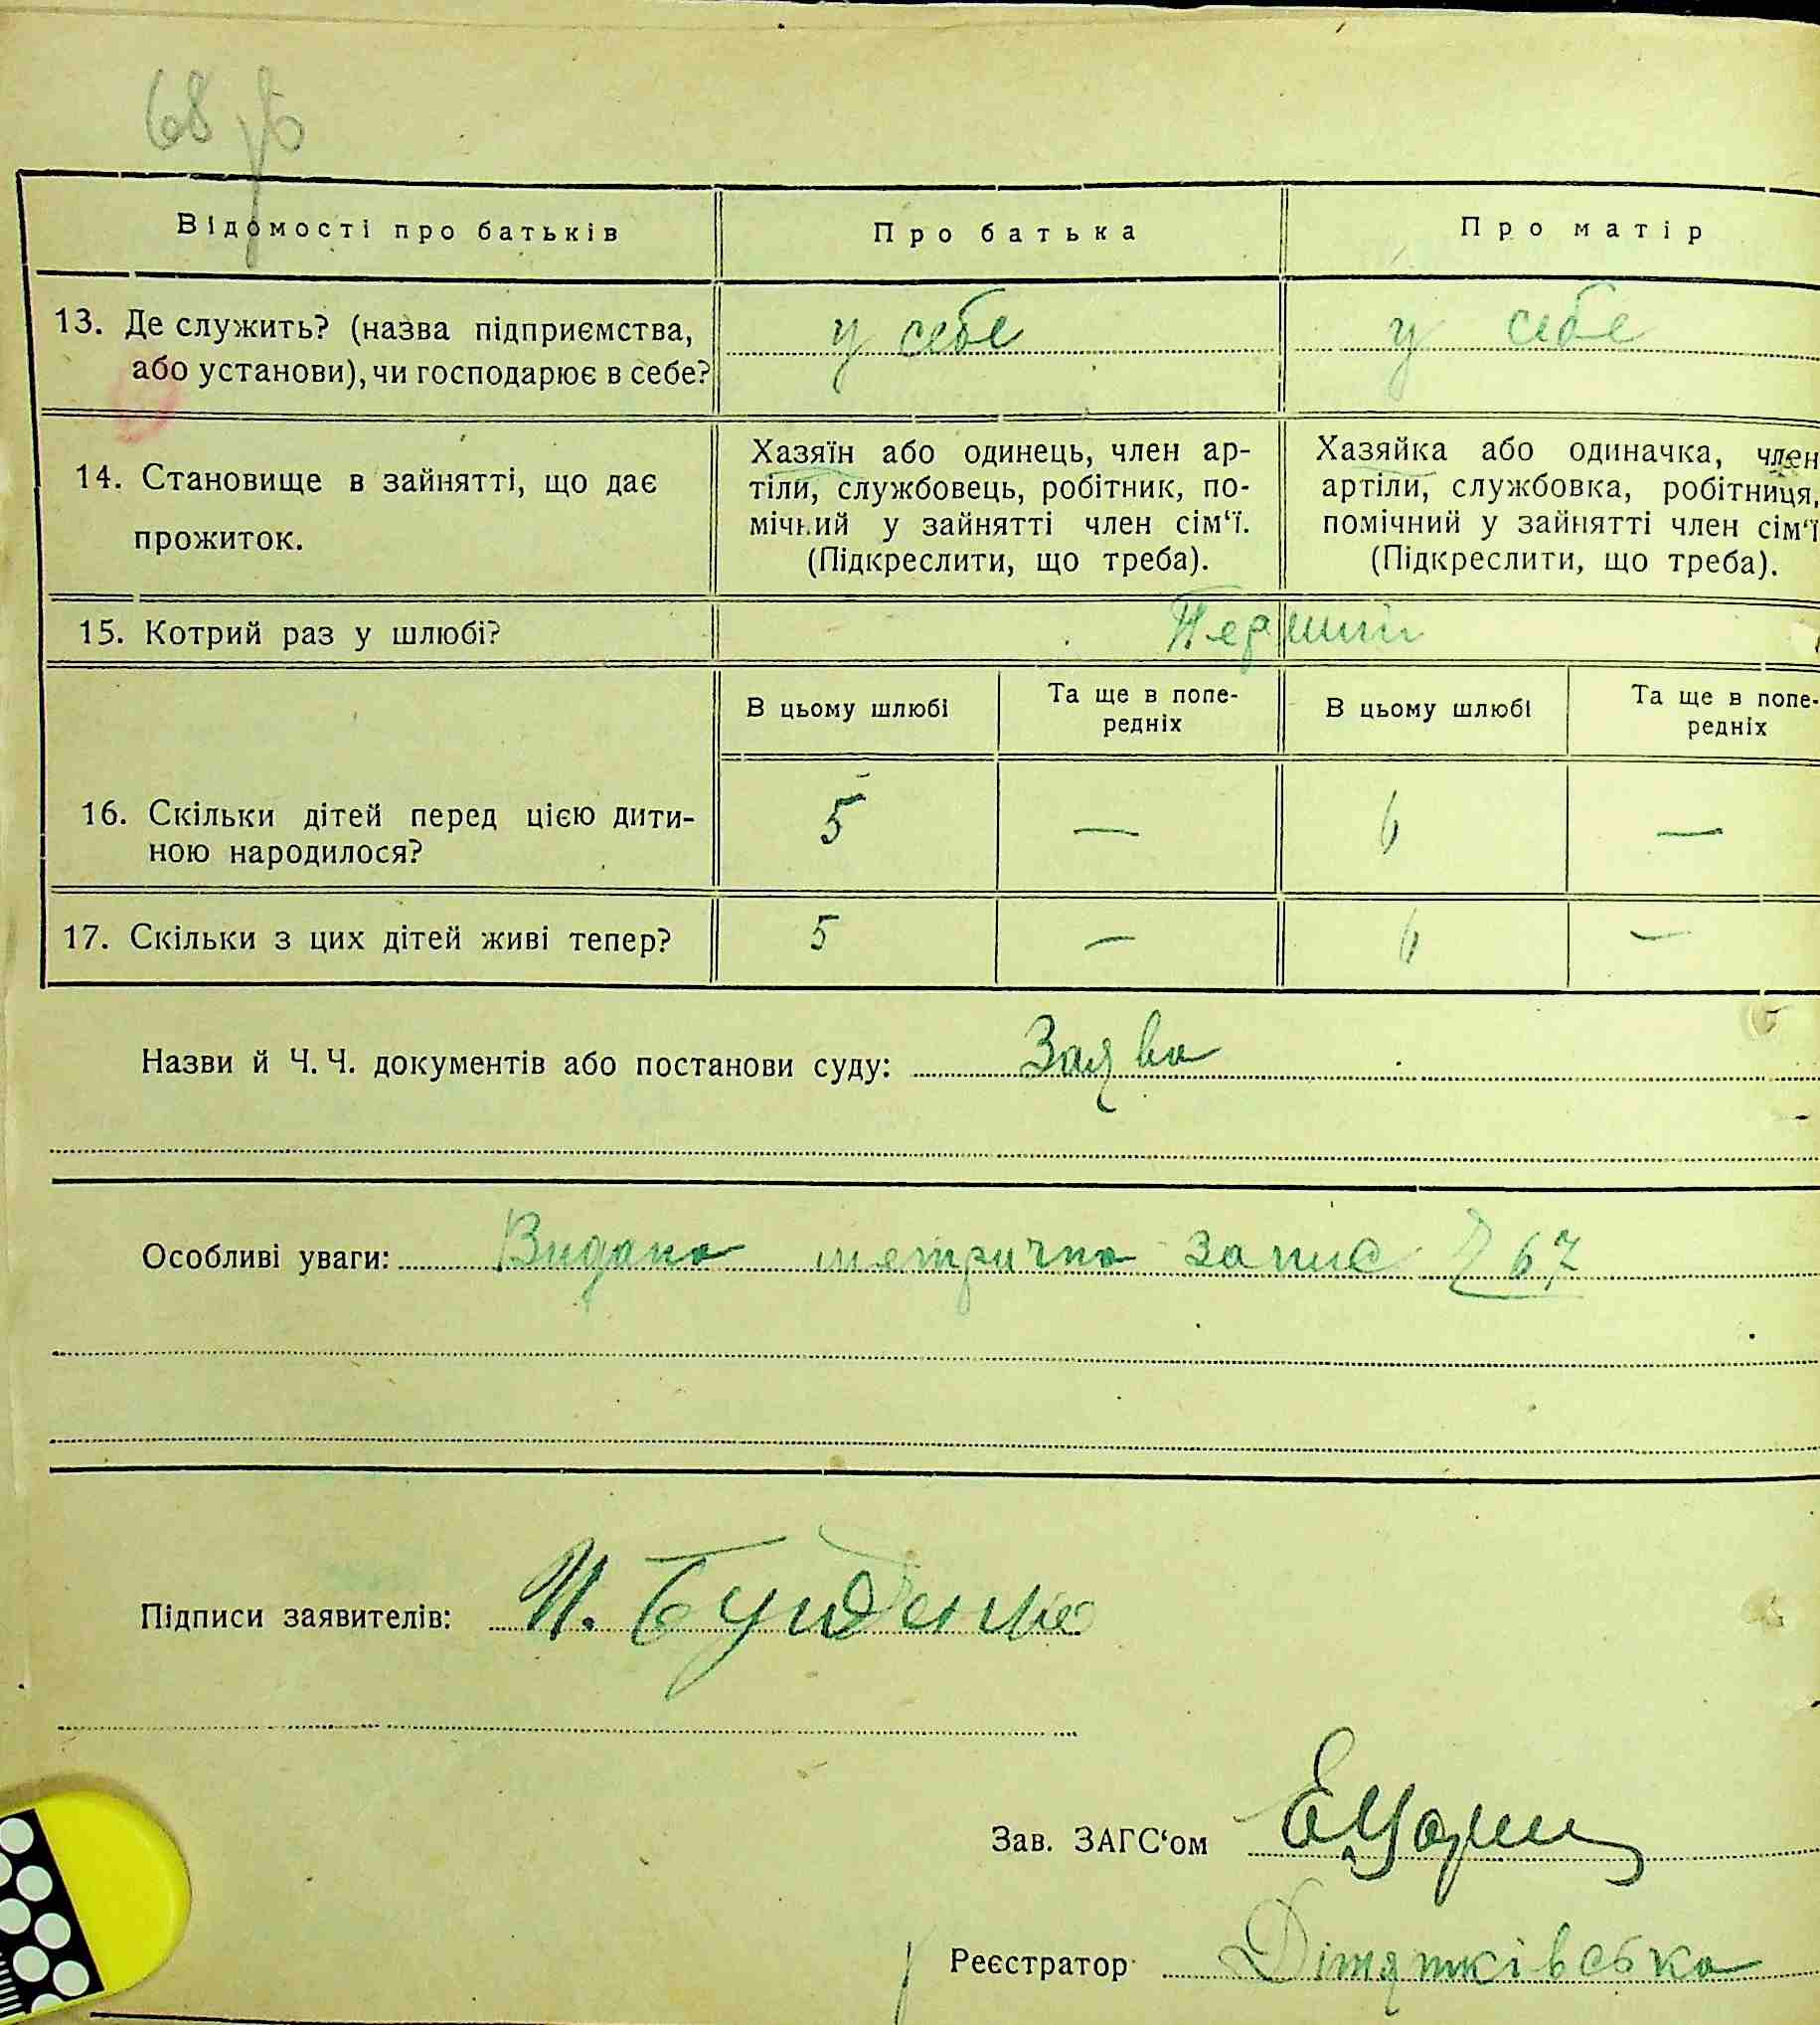 68 зв
Відомості про батьків
Про батька
Про матір
13. Де служить? (назва підприємства,
або установи), чи господарює в себе?
у себе
у себе
14. Становище в зайнятті, що дає
прожиток.
Хазяїн або одинець, член ар-
тіли, службовець, робітник, по-
мічний у зайнятті член сім‘ї.
(Підкреслити, що треба).
Хазяйка або одиначка, член
артіли, службовка, робітниця,
помічний у зайнятті член сім‘ї
(Підкреслити, що треба).
15. Котрий раз у шлюбі?
Перший
В цьому шлюбі
Та ще в попе-
редніх
В цьому шлюбі
Та ще в попе-
редніх
16. Скільки дітей перед цією дити-
ною народилося?
5
—
6
—
17. Скільки з цих дітей живі тепер?
5
—
6
—
Назви й Ч. Ч. документів або постанови суду: Заява
Особливі уваги: Видано метрична запис 67
Підписи заявителів:
Зав. ЗАГС‘ом
Реєстратор Дітятківська